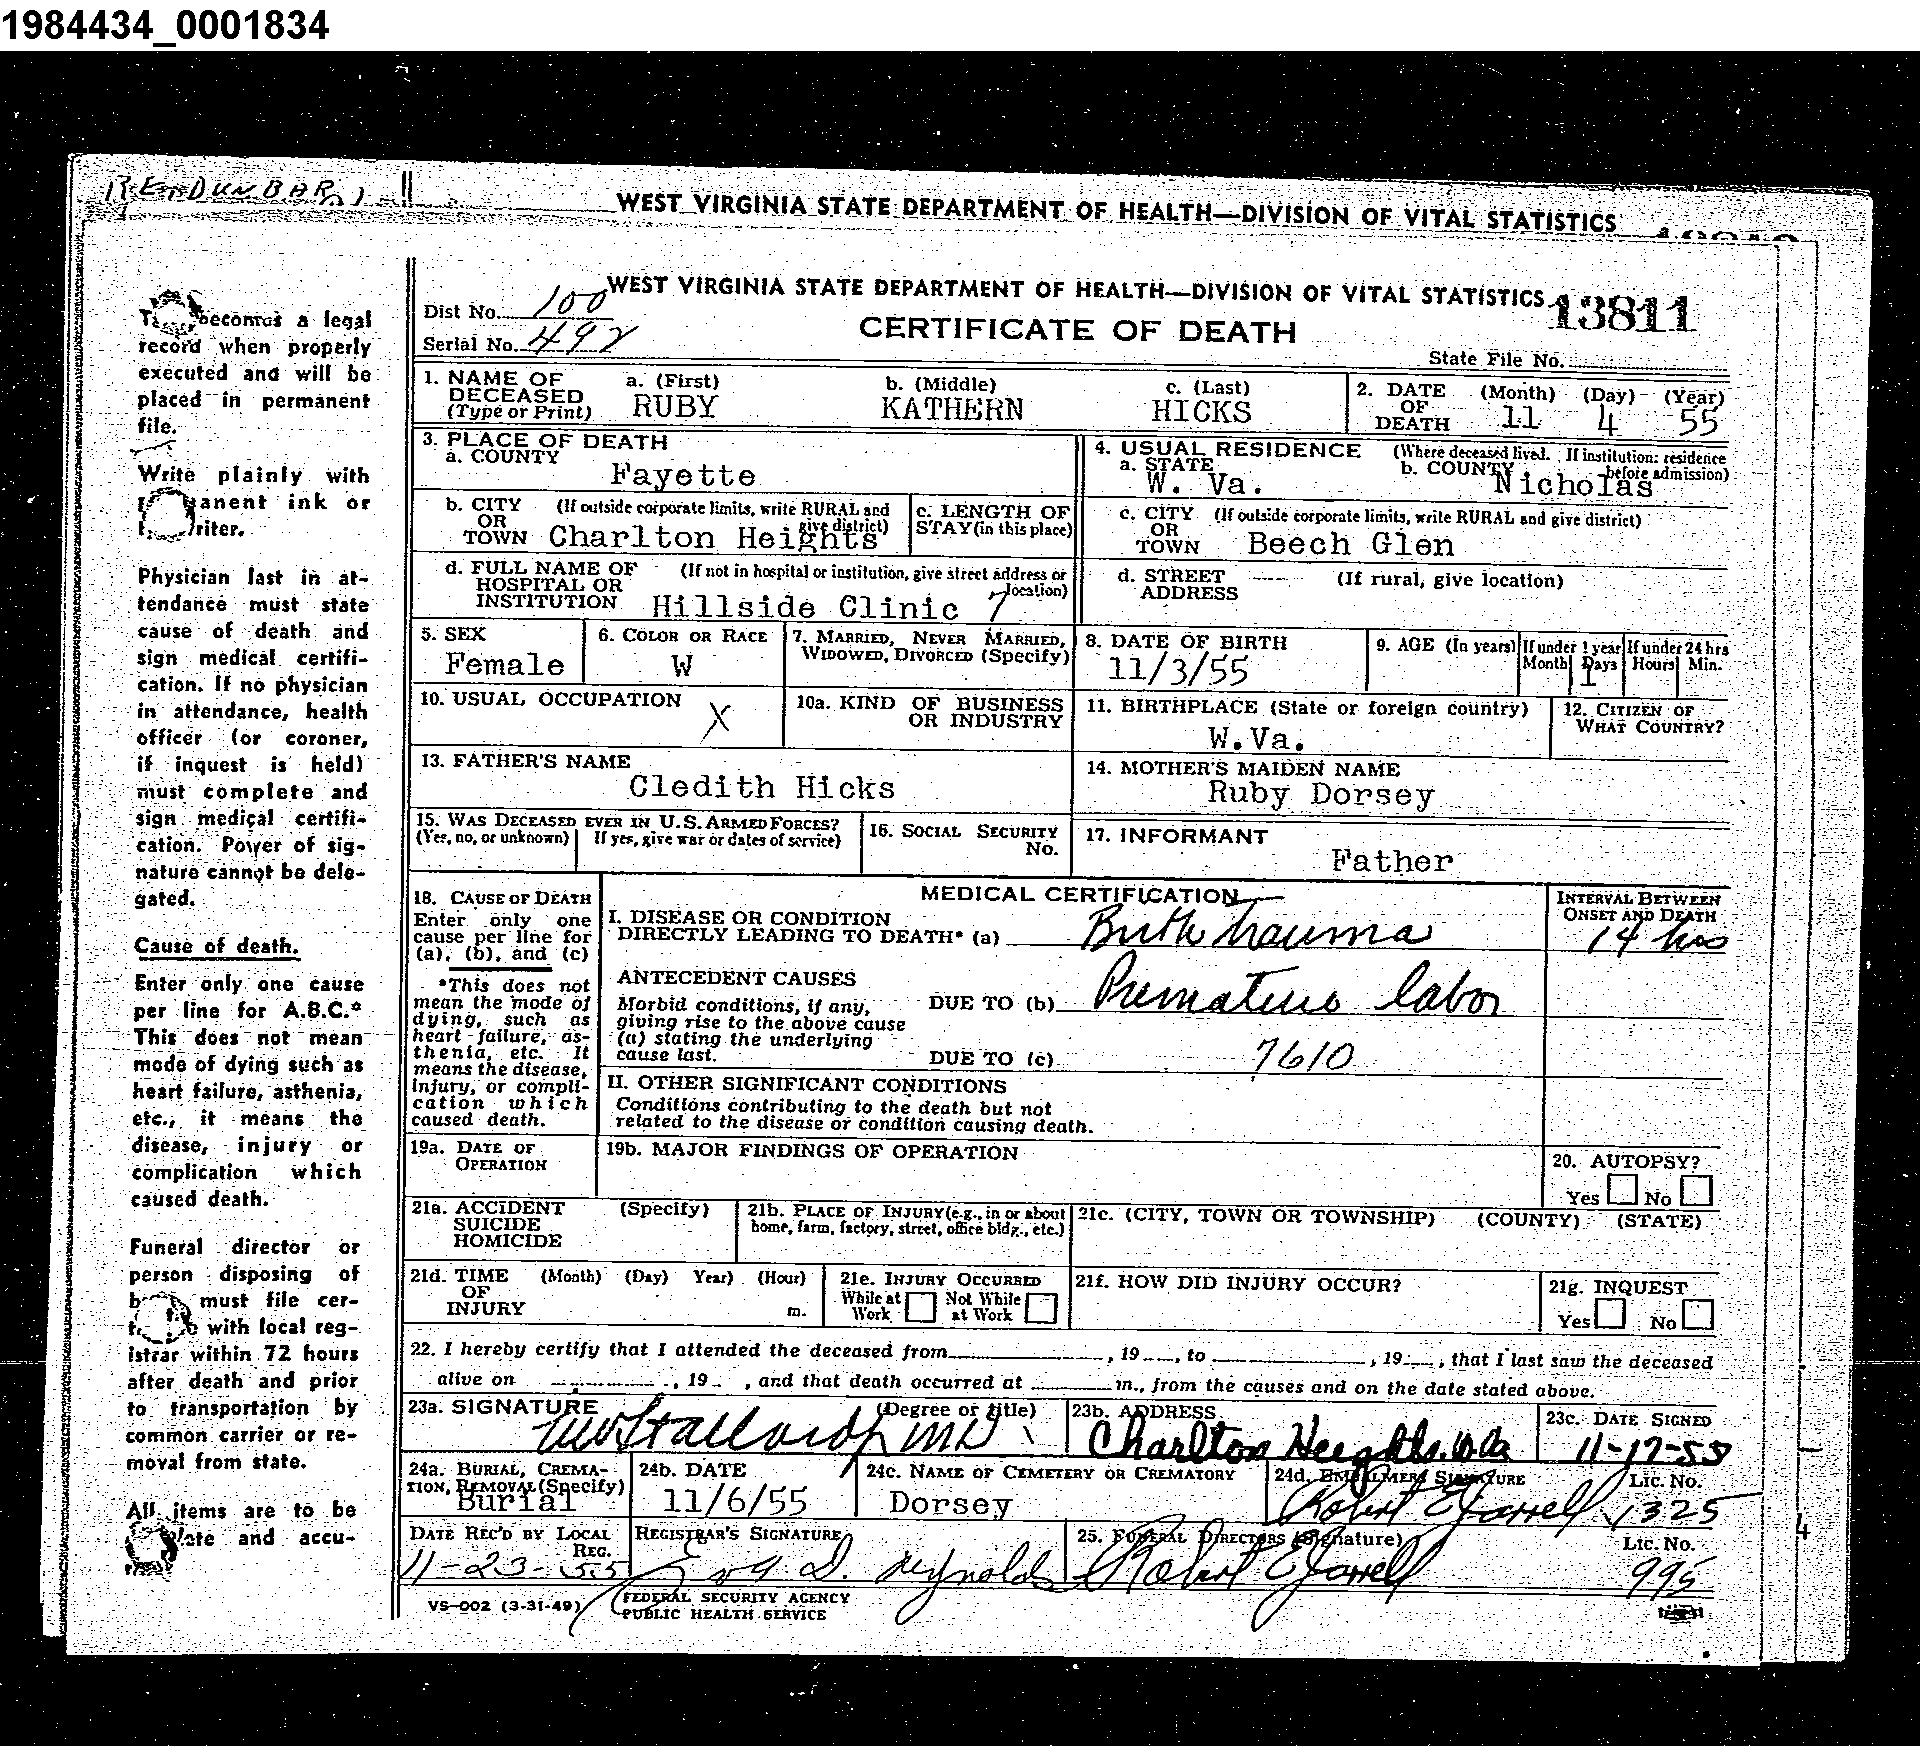 1984434_0001834
WEST VIRGINIA STATE DEPARTMENT OF HEALTH—DIVISION OF VITAL STATISTICS
WEST VIRGINIA STATE DEPARTMENT OF HEALTH—DIVISION OF VITAL STATISTICS 13811
Dist No. 100
CERTIFICATE OF DEATH
Serial No. 492
State File No.
becomes a legal
record when properly
executed and will be
placed in permanent
file.
Write plainly with
ink or
Physician last in at-
tendance must state
cause of death and
sign medical certifi-
cation. If no physician
in attendance, health
officer (or coroner,
if inquest is held)
must complete and
sign medical certifi-
cation. Power of sig-
nature cannot be dele-
gated.
Cause of death.
Enter only one cause
per line for A.B.C.*
This does not mean
mode of dying such as
heart failure, asthenia,
etc., it means the
disease, injury or
complication which
caused death.
Funeral director or
person disposing of
must file cer-
with local reg-
istrar within 72 hours
after death and prior
to transportation by
common carrier or re-
moval from state.
All items are to be
and accu-
1. NAME OF DECEASED (Type or Print) a. (First) RUBY b. (Middle) KATHERN c. (Last) HICKS
2. DATE OF DEATH (Month) 11 (Day) 4 (Year) 55
3. PLACE OF DEATH
a. COUNTY Fayette
4. USUAL RESIDENCE (Where deceased lived. If institution: residence before admission)
a. STATE W. Va. b. COUNTY Nicholas
b. CITY OR TOWN (If outside corporate limits, write RURAL and give district) Charlton Heights
c. LENGTH OF STAY (in this place)
c. CITY OR TOWN (If outside corporate limits, write RURAL and give district) Beech Glen
d. FULL NAME OF HOSPITAL OR INSTITUTION (If not in hospital or institution, give street address or location) Hillside Clinic 7
d. STREET ADDRESS ---- (If rural, give location)
5. SEX Female
6. COLOR OR RACE W
7. MARRIED, NEVER MARRIED, WIDOWED, DIVORCED (Specify)
8. DATE OF BIRTH 11/3/55
9. AGE (In years) If under 1 year Month Days 1 If under 24 hrs Hours Min.
10. USUAL OCCUPATION X
10a. KIND OF BUSINESS OR INDUSTRY
11. BIRTHPLACE (State or foreign country) W.Va.
12. CITIZEN OF WHAT COUNTRY?
13. FATHER'S NAME Cledith Hicks
14. MOTHER'S MAIDEN NAME Ruby Dorsey
15. WAS DECEASED EVER IN U.S. ARMED FORCES? (Yes, no, or unknown) If yes, give war or dates of service)
16. SOCIAL SECURITY No.
17. INFORMANT Father
18. CAUSE OF DEATH
Enter only one
cause per line for
(a), (b), and (c)
*This does not
mean the mode of
dying, such as
heart failure, as-
thenia, etc. It
means the disease,
injury, or compli-
cation which
caused death.
MEDICAL CERTIFICATION
INTERVAL BETWEEN ONSET AND DEATH
I. DISEASE OR CONDITION
DIRECTLY LEADING TO DEATH* (a) Birth trauma 14 hrs
ANTECEDENT CAUSES
Morbid conditions, if any,
giving rise to the above cause
(a) stating the underlying
cause last.
DUE TO (b) Premature labor
DUE TO (c) 7610
II. OTHER SIGNIFICANT CONDITIONS
Conditions contributing to the death but not
related to the disease or condition causing death.
19a. DATE OF OPERATION
19b. MAJOR FINDINGS OF OPERATION
20. AUTOPSY? Yes No
21a. ACCIDENT SUICIDE HOMICIDE (Specify)
21b. PLACE OF INJURY (e.g., in or about home, farm, factory, street, office bldg., etc.)
21c. (CITY, TOWN OR TOWNSHIP) (COUNTY) (STATE)
21d. TIME OF INJURY (Month) (Day) Year) (Hour) m.
21e. INJURY OCCURRED While at Work Not While at Work
21f. HOW DID INJURY OCCUR?
21g. INQUEST Yes No
22. I hereby certify that I attended the deceased from , 19 , to , 19 , that I last saw the deceased
alive on , 19 , and that death occurred at m., from the causes and on the date stated above.
23a. SIGNATURE (Degree or title) Stallard MD
23b. ADDRESS Charlton Heights, W.Va
23c. DATE SIGNED 11-17-55
24a. BURIAL, CREMA-TION, REMOVAL (Specify) Burial
24b. DATE 11/6/55
24c. NAME OF CEMETERY OR CREMATORY Dorsey
24d. EMBALMERS SIGNATURE Robert E Jarrell Lic. No. 1325
DATE REC'D BY LOCAL REG. 11-23-55
REGISTRAR'S SIGNATURE D. Reynolds
25. FUNERAL DIRECTORS (Signature) Robert E Jarrell Lic. No. 995
VS-002 (3-31-49)
FEDERAL SECURITY AGENCY
PUBLIC HEALTH SERVICE